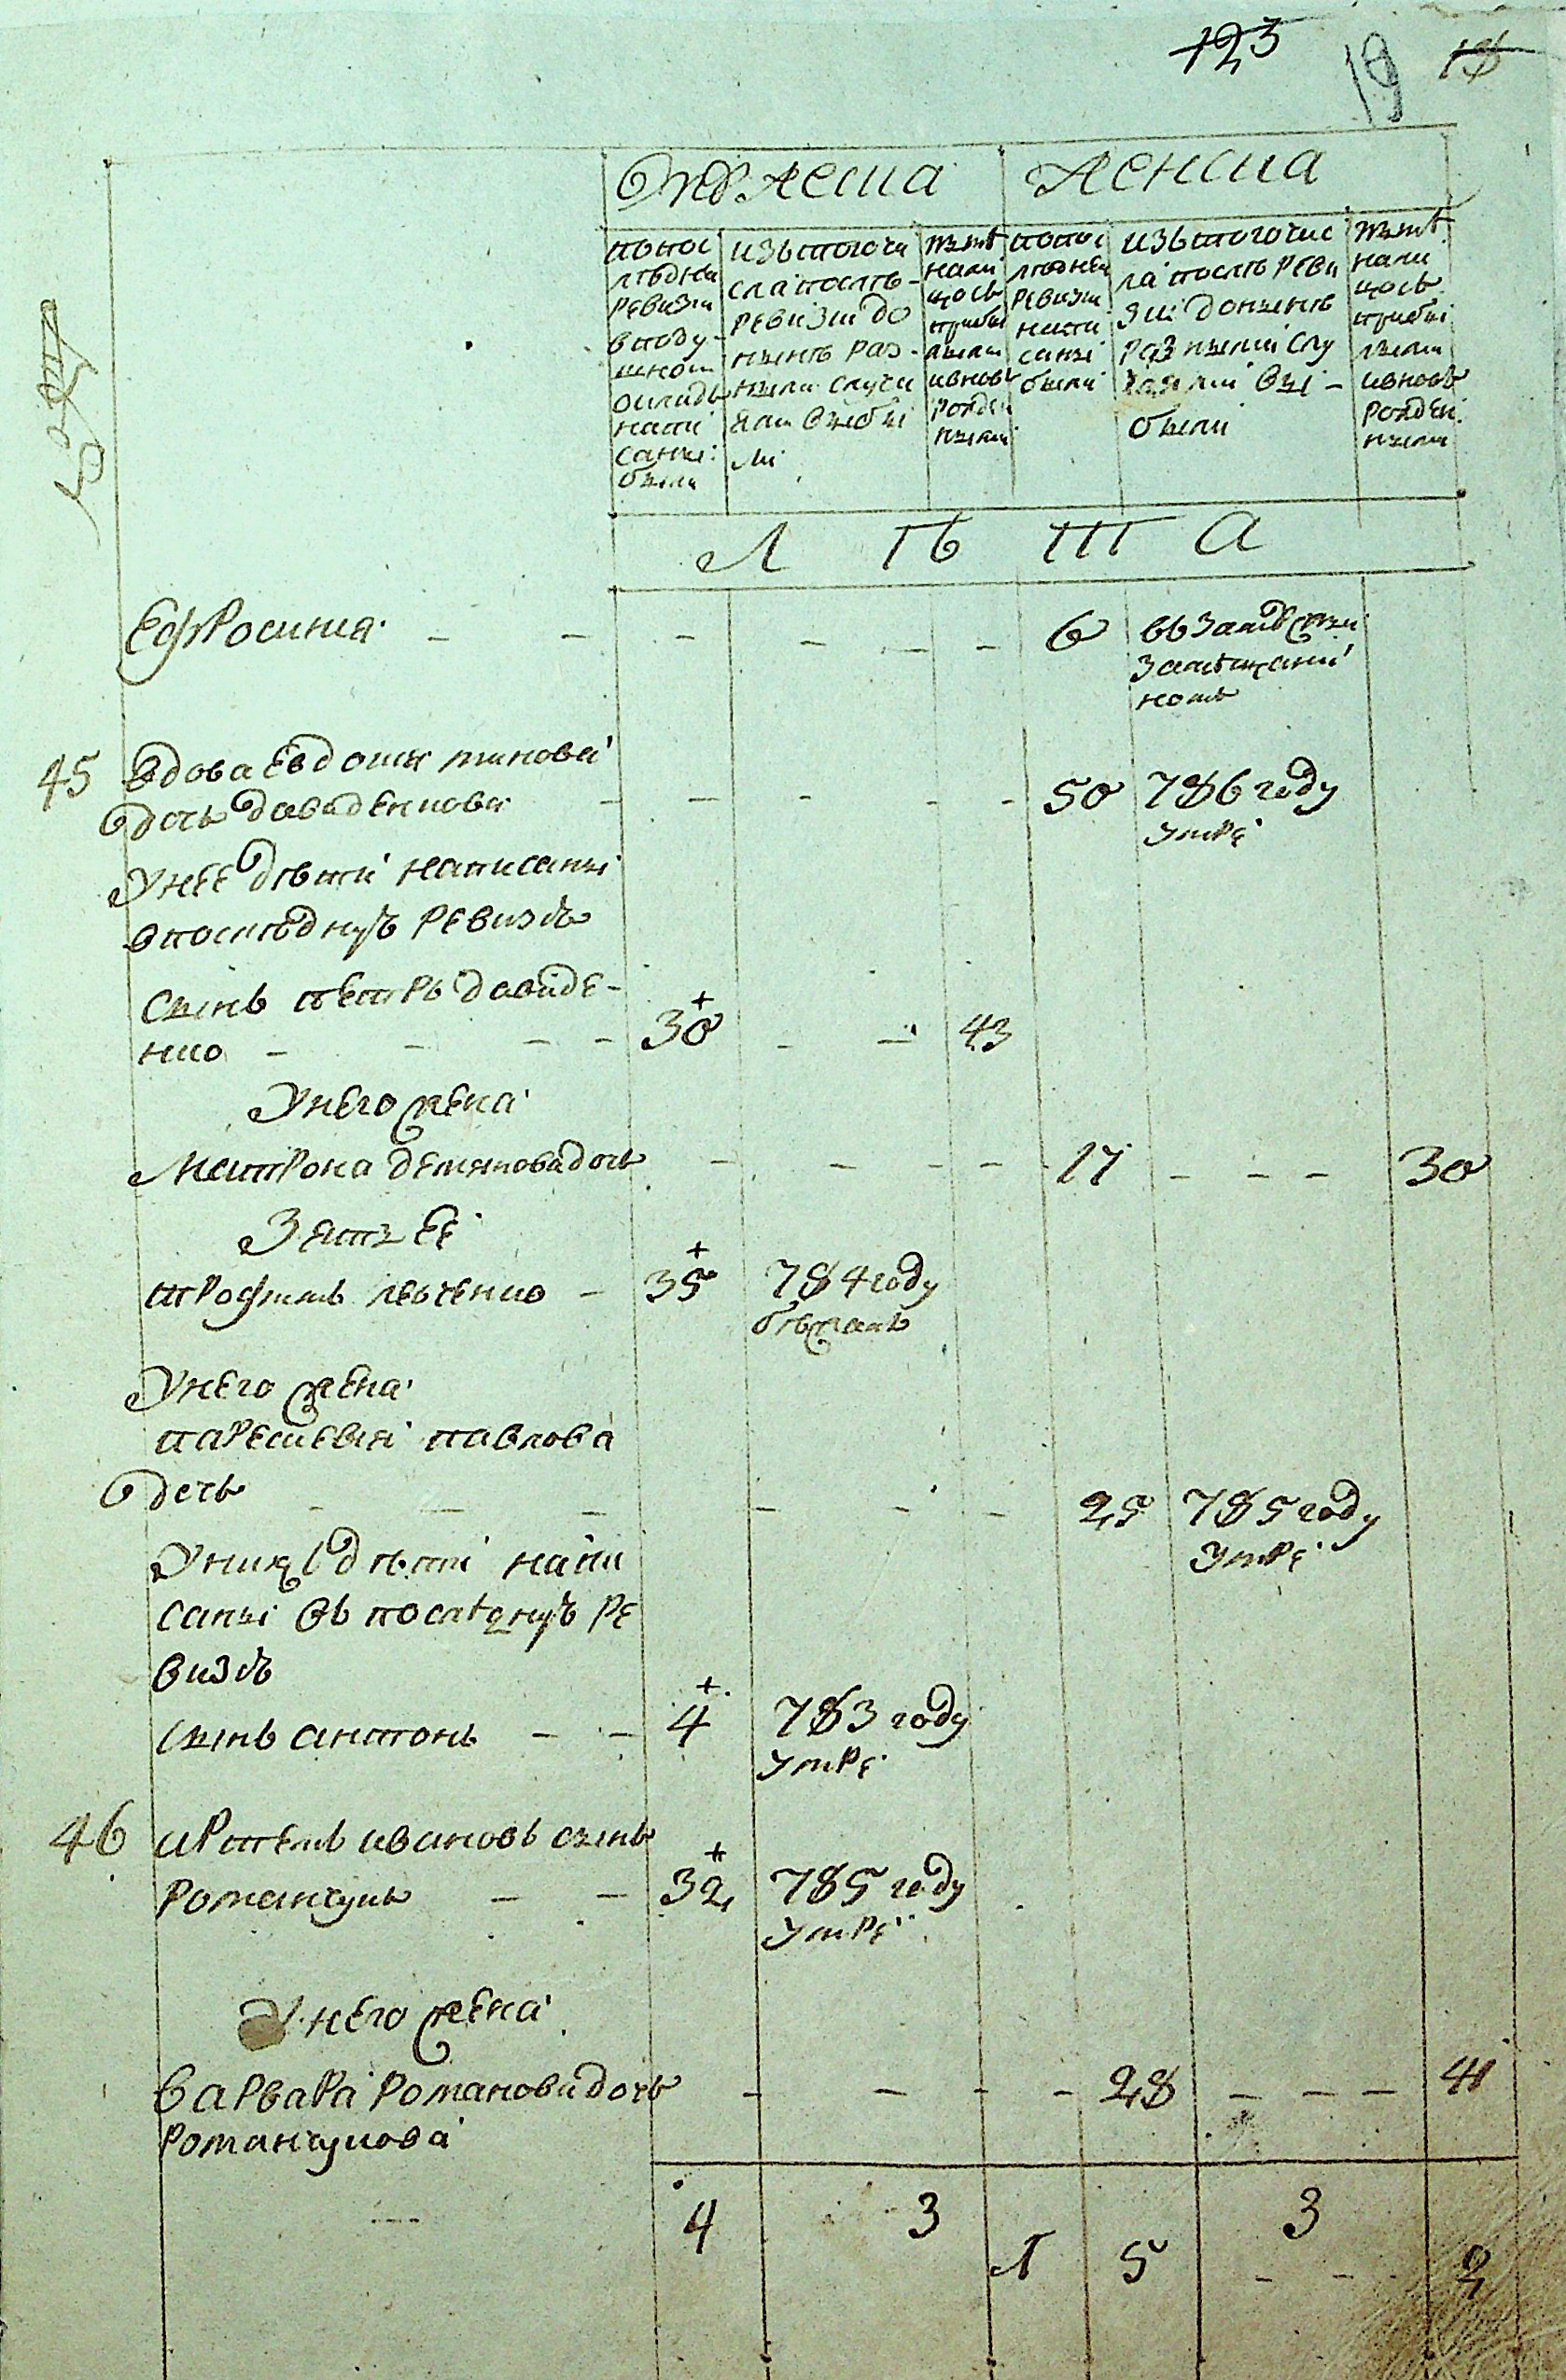 123 19 18
Мужеска Женска
по пос
лѣдней
ревизи
в поду-
шном
окладѣ
напи
саны
были
изъ того чи
сла послѣ-
ревизии до
нынѣ раз-
ными случа
ями выбы
ли
нынѣ
нали
цось
прибы
лыми
и вновь
рожден
ными
по пос
лѣдней
ревизи
напи
саны
были
изъ того чис
ла послѣ реви
зии до нынѣ
разными слу
чаями вы-
были
нынѣ
нали
цось
прибы
лыми
и вновь
рожден
ными
Л Ѣ Т А
Ефросиния 6 въ замужствѣ
за мѣщани
номъ
45 Вдова Евдокия минова
дочь давиденкова 50 786 году
умре
У нее дѣти написаны
в последнуъ ревизъ
Сынъ петръ давиде-
нко 30 43
У него жена
Матрона демянова дочь 17 30
Зять ее
трофимъ левченко 35 784 году
бѣжалъ
У него жена
параскевия павлова
дочь 25 785 году
умре
У ниxъ дѣти напи
саны въ последнуъ ре
визъ
Сынъ антонъ 4 783 году
умре
46 артемъ ивановъ сынъ
романчукъ 32 785 году
умре
У него жена
варвара романова дочь 28 41
романчукова
4 3 1 5 3 2